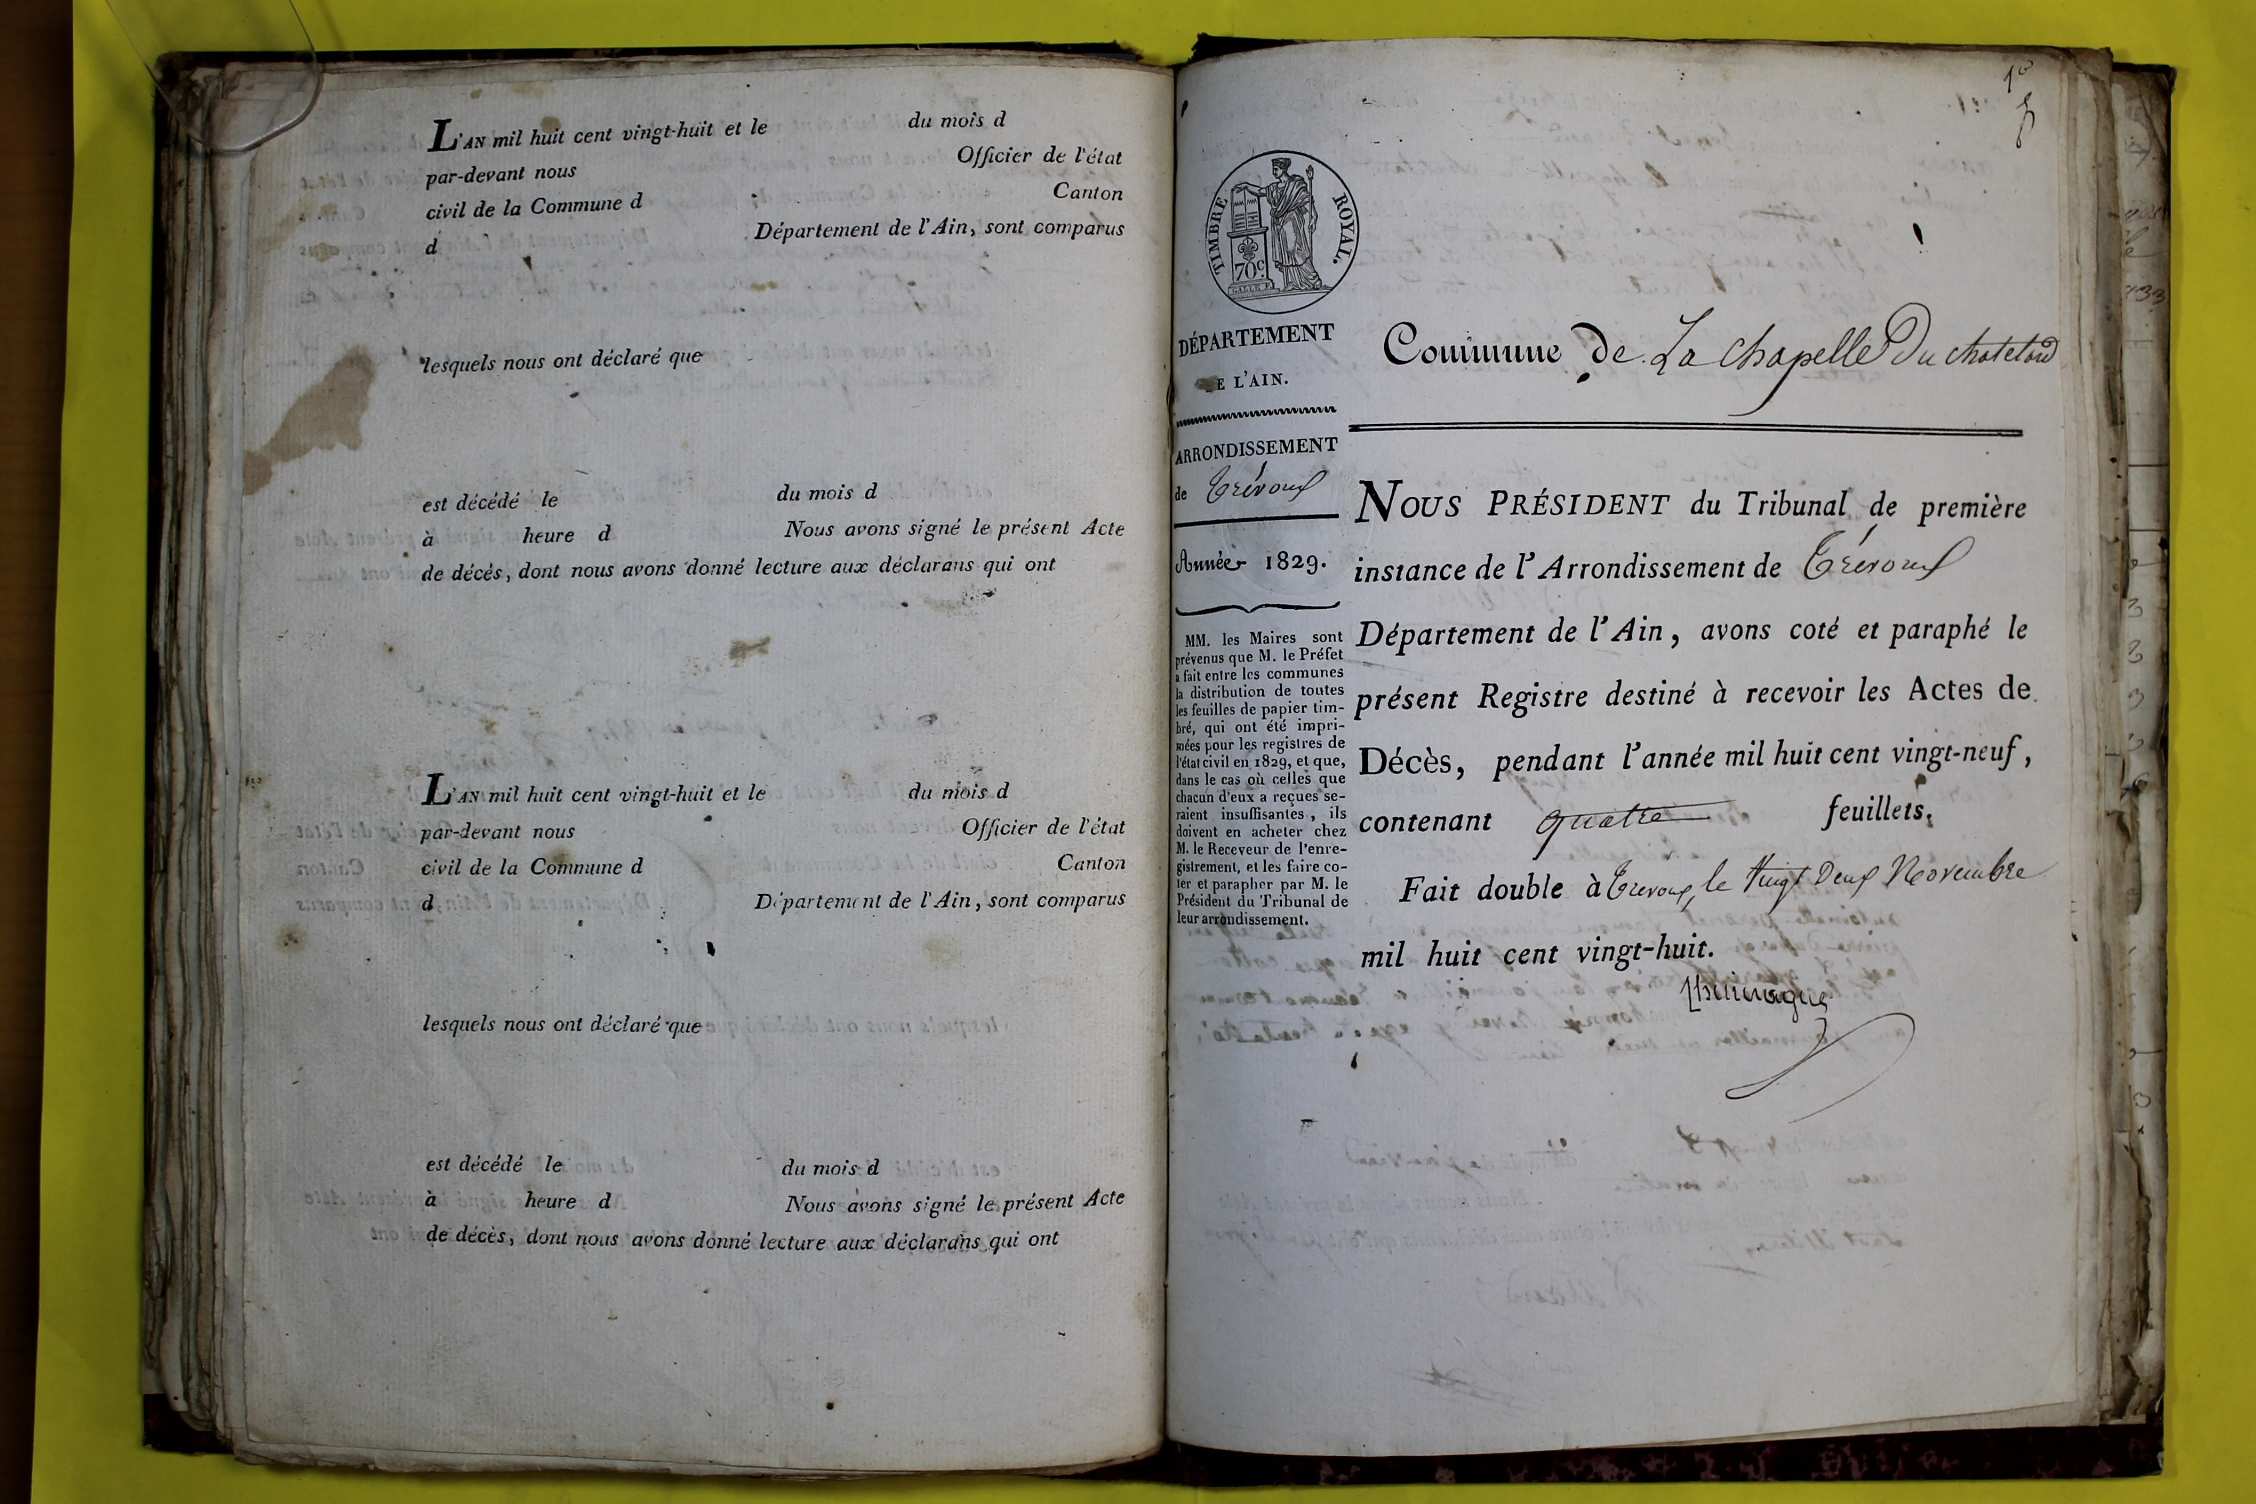 L'AN mil huit cent vingt-huit et le du mois d
par-devant nous Officier de l'état
civil de la Commune d Canton
d Département de l'Ain, sont comparus
lesquels nous ont déclaré que
est décédé le du mois d
à heure d Nous avons signé le présent Acte
de décés, dont nous avons donné lecture aux déclarans qui ont
L'AN mil huit cent vingt-huit et le du mois d
par-devant nous Officier de l'état
civil de la Commune d Canton
d Département de l'Ain, sont comparus
lesquels nous ont déclaré que
est décédé le du mois d
à heure d Nous avons signé le présent Acte
de décès, dont nous avons donné lecture aux déclarans qui ont
TIMBRE ROYAL.
70 c.
DÉPARTEMENT
DE L'AIN.
ARRONDISSEMENT
de Trévoux
Année 1829.
MM. les Maires sont
prévenus que M. le Préfet
a fait entre les communes
la distribution de toutes
les feuilles de papier tim-
bré, qui ont été impri-
mées pour les registres de
l'état civil en 1829, et que,
dans le cas où celles que
chacun d'eux a reçues se-
raient insuffisantes, ils
doivent en acheter chez
M. le Receveur de l'enre-
gistrement, et les faire co-
ter et parapher par M. le
Président du Tribunal de
leur arrondissement.
Commune de La Chapelle Du chatelard
NOUS PRÉSIDENT du Tribunal de première
instance de l'Arrondissement de Trévoux
Département de l'Ain, avons coté et paraphé le
présent Registre destiné à recevoir les Actes de
Décès, pendant l'année mil huit cent vingt-neuf,
contenant quatre feuillets.
Fait double à Trevoux, le Vingt Deux Novembre
mil huit cent vingt-huit.